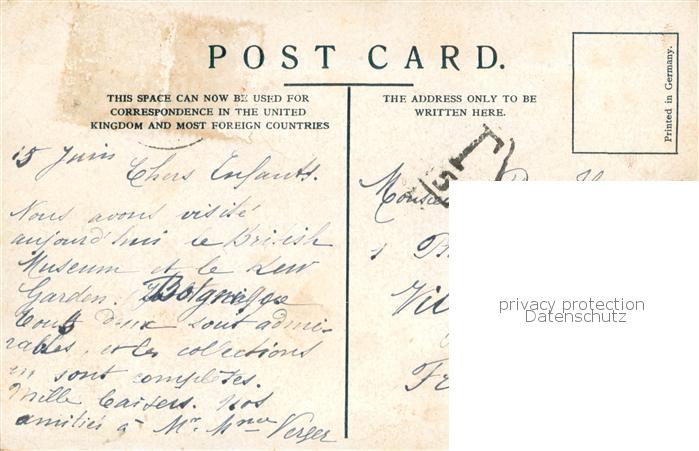 POST CARD.
THIS SPACE CAN NOW BE USED FOR
CORRESPONDENCE IN THE UNITED
KINGDOM AND MOST FOREIGN COUNTRIES
15 Juin
Chers Enfants.
Nous avons visité
aujourd'hui le British
Museum et le Kew
Garden. Botanique
tout deux sont admi-
rables, et les collections
en sont complètes.
Mille baisers. nos
amitiés à Mr. Mme Verger
THE ADDRESS ONLY TO BE
WRITTEN HERE.
Printed in Germany.
T
privacy protection
Datenschutz